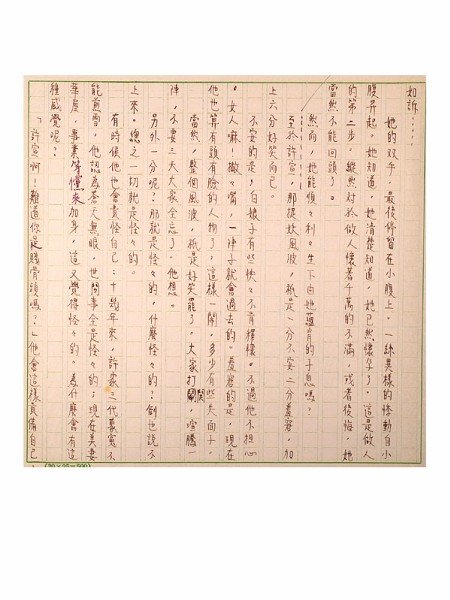 如訴⋯⋯
她的双手,最後停留在小腹上。一絲異樣的悸動自小
腹昇起。她知道,她清楚知道,她已然懷孕了。這是做人
的第二步。縱然對於做人懷著千萬的不滿,或者後悔,她
當然不能回頭了。
然而,她能順々利々生下由她蘊育的子息嗎?
至於許宣,那提奴風波,祇是一分不安二分羞窘,加
上六分好笑而已。
不安的是,白娘子有些怏々不肯釋懷。不過他不担心
。女人嘛!撤々嘴,一陣子就會過去的。羞窘的是,現在
他也算有頭有臉的人物了,這樣一鬧,多少有些失面子。
當然,整個風波,祇是好笑罷了。大家打開,喧騰一
陣,不要三天大家全忘了。他想。
另外一分呢?那就是怪々的。什麼怪々的?倒也說不
上來。總之一切就是怪々的。
有時候他也會責怪自己:十幾年來,許家三代貧窮不
能煎當,他認為蒼天無眼,世間事全是怪々的;現在美妻
華屋,事業等懂來加身,這又覺得怪々的。為什麼會有這
種感覺呢?
「許宣啊!難道你是賤骨頭嗎?」他會這樣責備自己
(20×25=500)